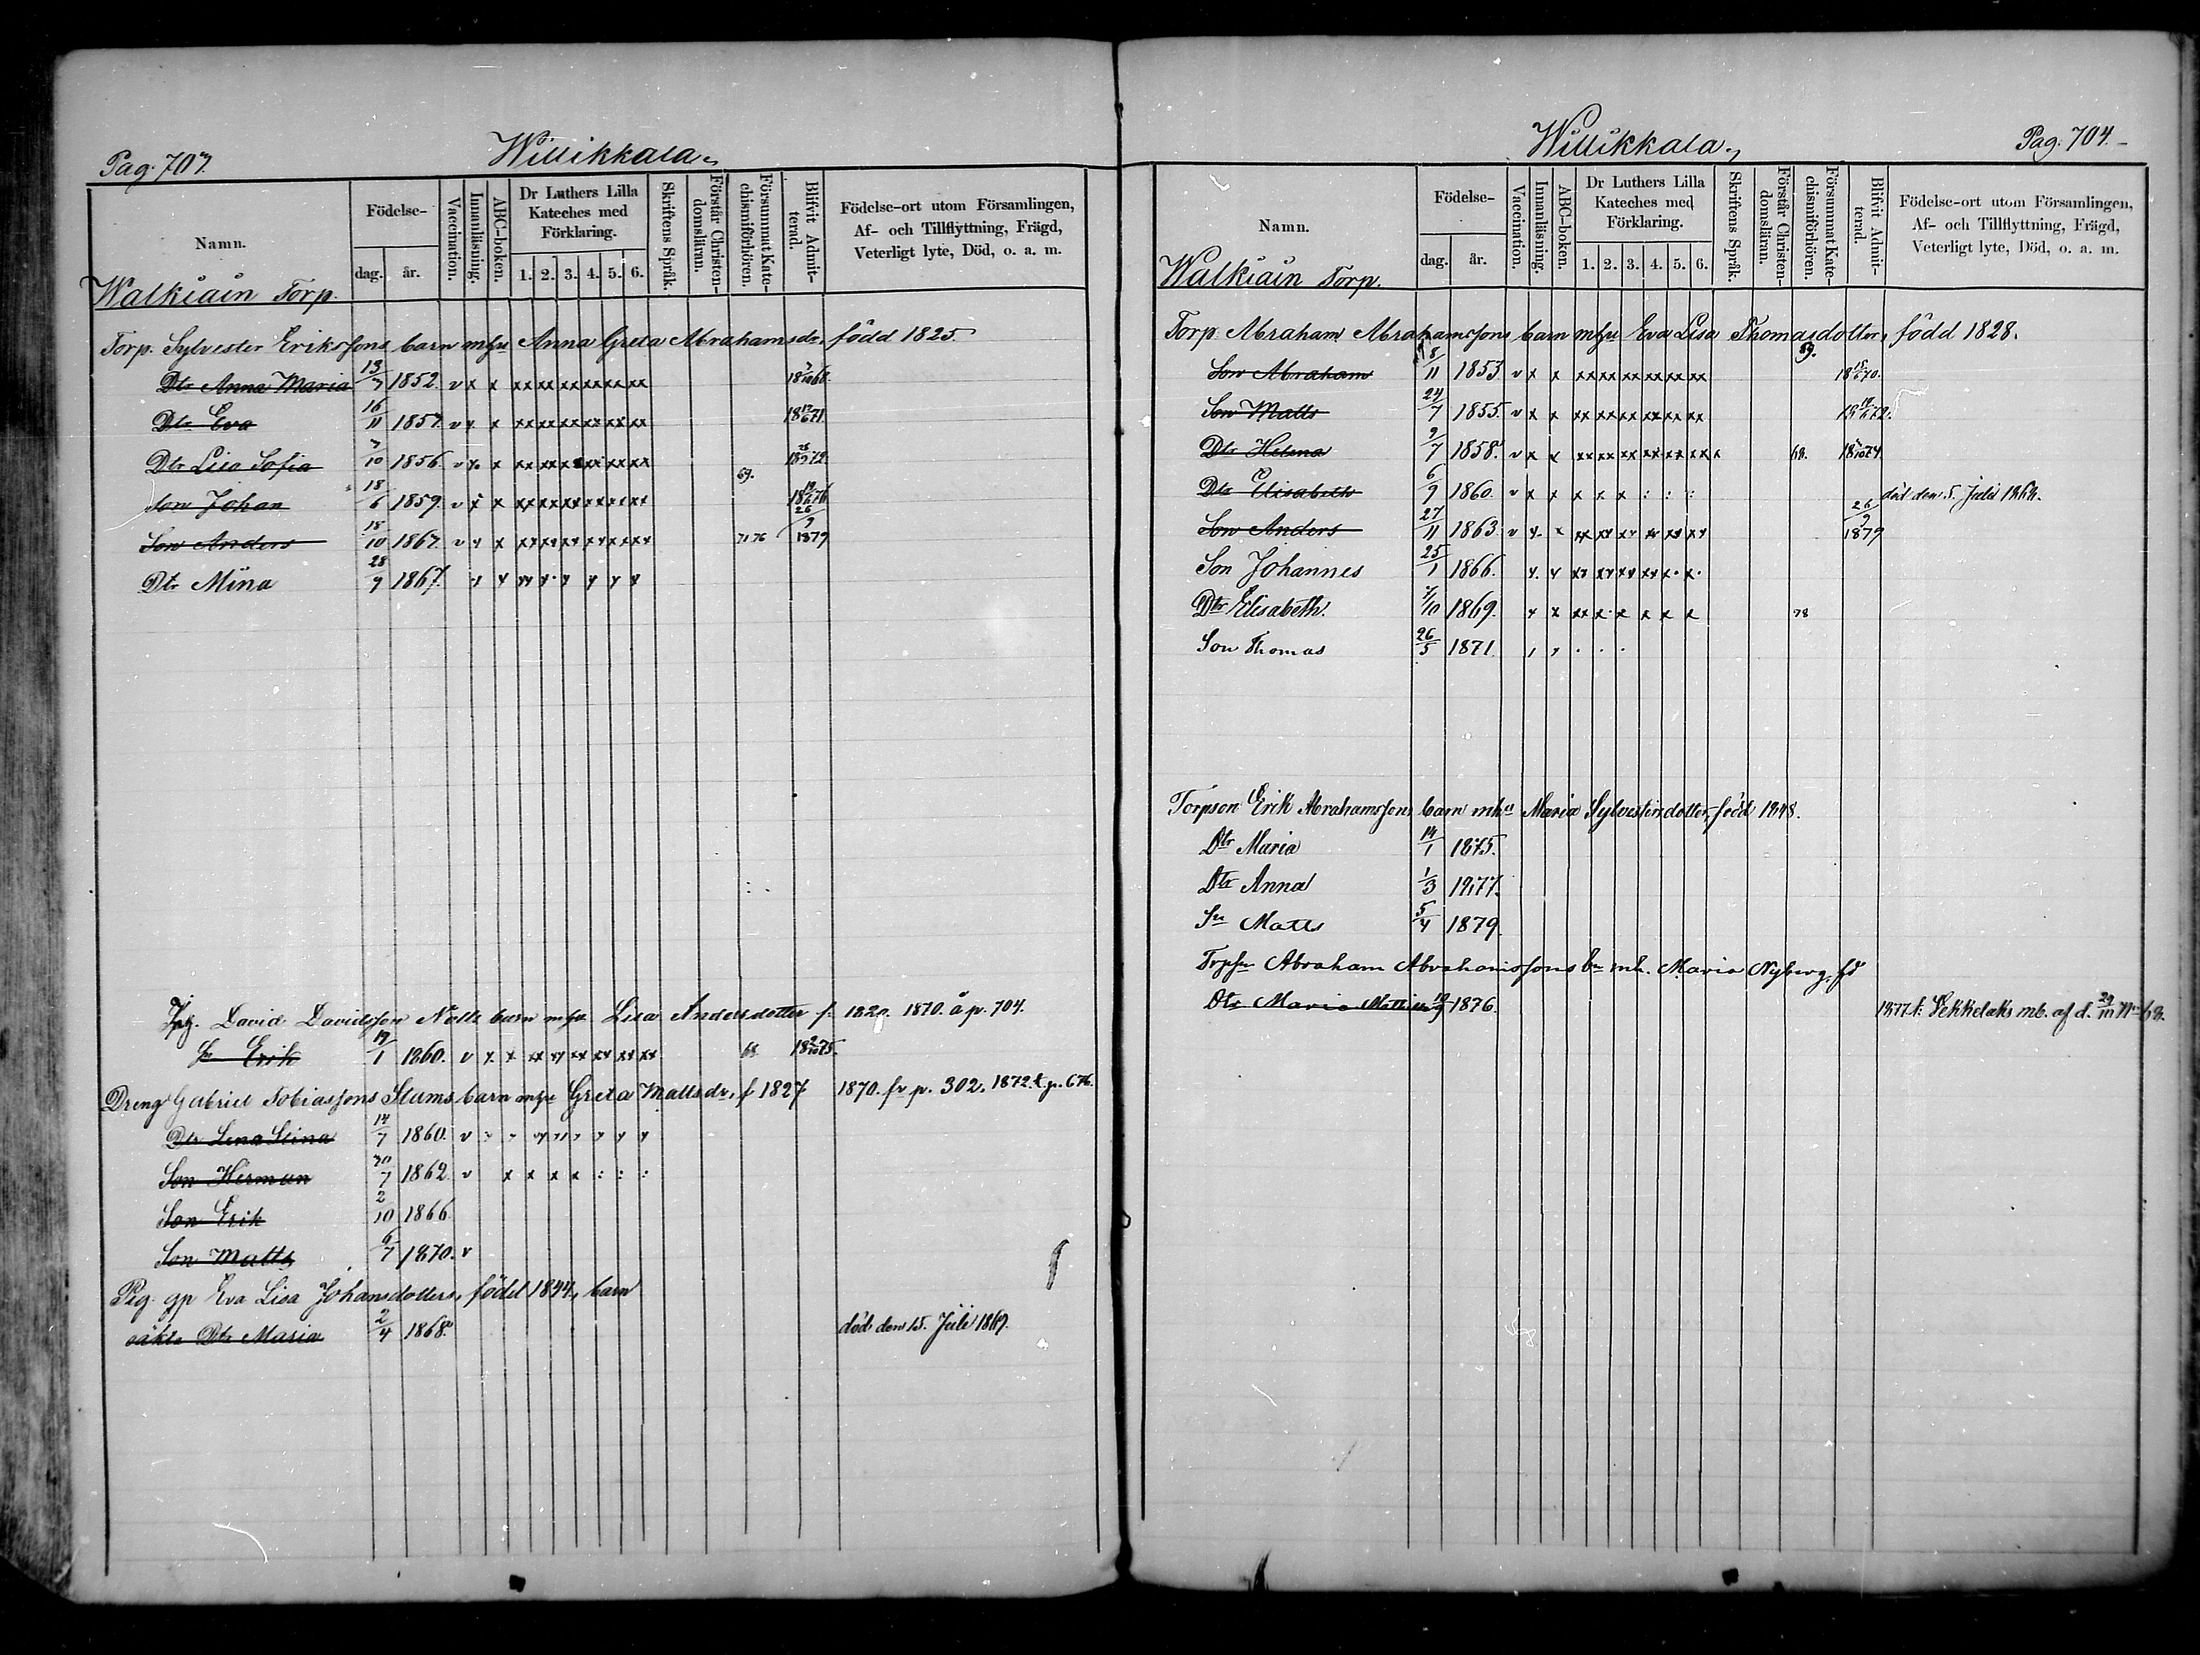 Pag. 703.
Willikkala
Namn.
Födelse-
dag.
år.
Vaccination.
Innanläsning.
ABC-boken.
Dr Luthers Lilla
Kateches med
Förklaring.
1. 2. 3. 4. 5. 6.
Skriftens Språk.
Förstår Christen-
domsläran.
Försummat Kate-
chismiförhören.
Blifvit Admit-
terad.
Födelse-ort utom Församlingen,
Af- och Tillflyttning, Frägd,
Veterligt lyte, Död, o. a. m.
Walkiain Torp.
Torp. Sylvester Erikssons barn mhu Anna Greta Abrahamsdr, född 1825.
Dtr Anna Maria 13/7 1852. v x x xx xx xx xx xx xx
Dtr Eva 16/11 1857. v x x xx xx xx xx xx xx
Dtr Lisa Sofia 7/10 1856. v x x xx xx xx xx xx xx
Son Johan 18/6 1859. v x x xx xx xx xx xx xx 69.
Son Anders 18/10 1867. v x x xx xx xx xx xx xx 71 76 26/9 1879
Dtr Mina 28/9 1867.
David Davidsson Nätt barn mhu Lisa Andersdotter f. 1820. 1870. å p. 704.
Sn Erik 19/1 1860. v x x xx xx xx xx xx xx 68
Dreng Gabriel Tobiassons Stams barn mhu Greta Mattsdr, f 1827 1870. fr p. 302. 1872. t. p. 676.
Dtr Lena Stina 14/7 1860. v
Son Herman 30/7 1862. v x x x x : : :
Son Erik 2/10 1866.
Son Matts 6/7 1870. v
Pig. gp Eva Lisa Johansdotters, född 1844, barn
oäkta Dtr Maria 2/4 1868. död den 15. Juli 1869.
Willikkala
Pag. 704.
Namn.
Födelse-
dag.
år.
Vaccination.
Innanläsning.
ABC-boken.
Dr Luthers Lilla
Kateches med
Förklaring.
1. 2. 3. 4. 5. 6.
Skriftens Språk.
Förstår Christen-
domsläran.
Försummat Kate-
chismiförhören.
Blifvit Admit-
terad.
Födelse-ort utom Församlingen,
Af- och Tillflyttning, Frägd,
Veterligt lyte, Död, o. a. m.
Walkiain Torp.
Torp. Abraham Abrahamssons barn mhu Eva Lisa Thomasdotter, född 1828.
Son Abraham 8/11 1853 v x x xx xx xx xx xx xx 69.
Son Matts 24/7 1855. v x x xx xx xx xx xx xx
Dtr Helena 9/7 1858. v x x xx xx xx xx xx xx x 68.
Dtr Elisabeth 6/9 1860. v x x x x x : : : död den 5. Juli 1868.
Son Anders 27/11 1863. v x x xx xx xx xx xx xx 26/9 1879
Son Johannes 25/1 1866.
Dtr Elisabeth. 7/10 1869. 78
Son Thomas 26/5 1871.
Torpson Erik Abrahamsson, barn mhu Maria Sylvestersdotter, född 1848.
Dtr Maria 14/1 1875.
Dtr Anna 1/3 1877.
Sn Matts 5/4 1879.
Torpsn Abraham Abrahamssons bn mh. Maria Nyberg, fd
Dtr Maria 1876.